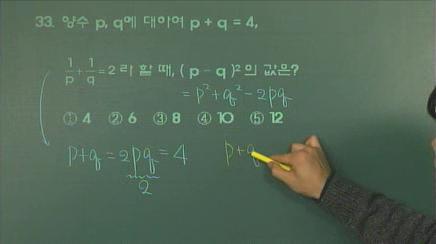 33. 양수 p, q에 대하여 p + q = 4,
1/p + 1/q = 2 라 할 때, ( p - q )² 의 값은?
= p² + q² - 2pq
① 4 ② 6 ③ 8 ④ 10 ⑤ 12
p+q = 2pq = 4 p+q
2